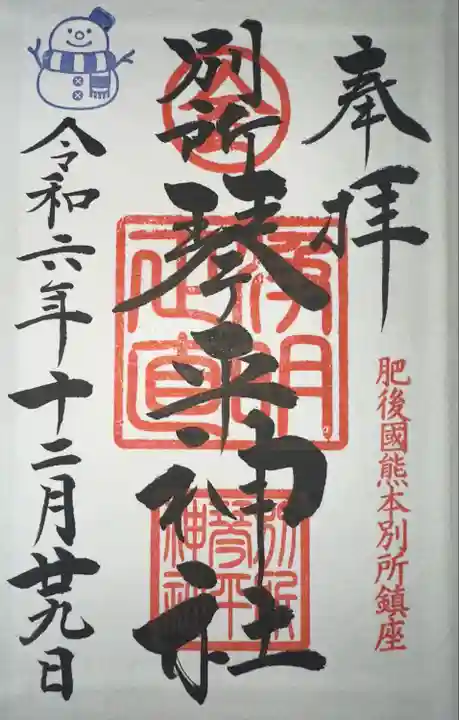 奉拝
肥後國熊本別所鎮座
別所琴平神社
浄明正直
別所琴平神社
令和六年十二月廿九日